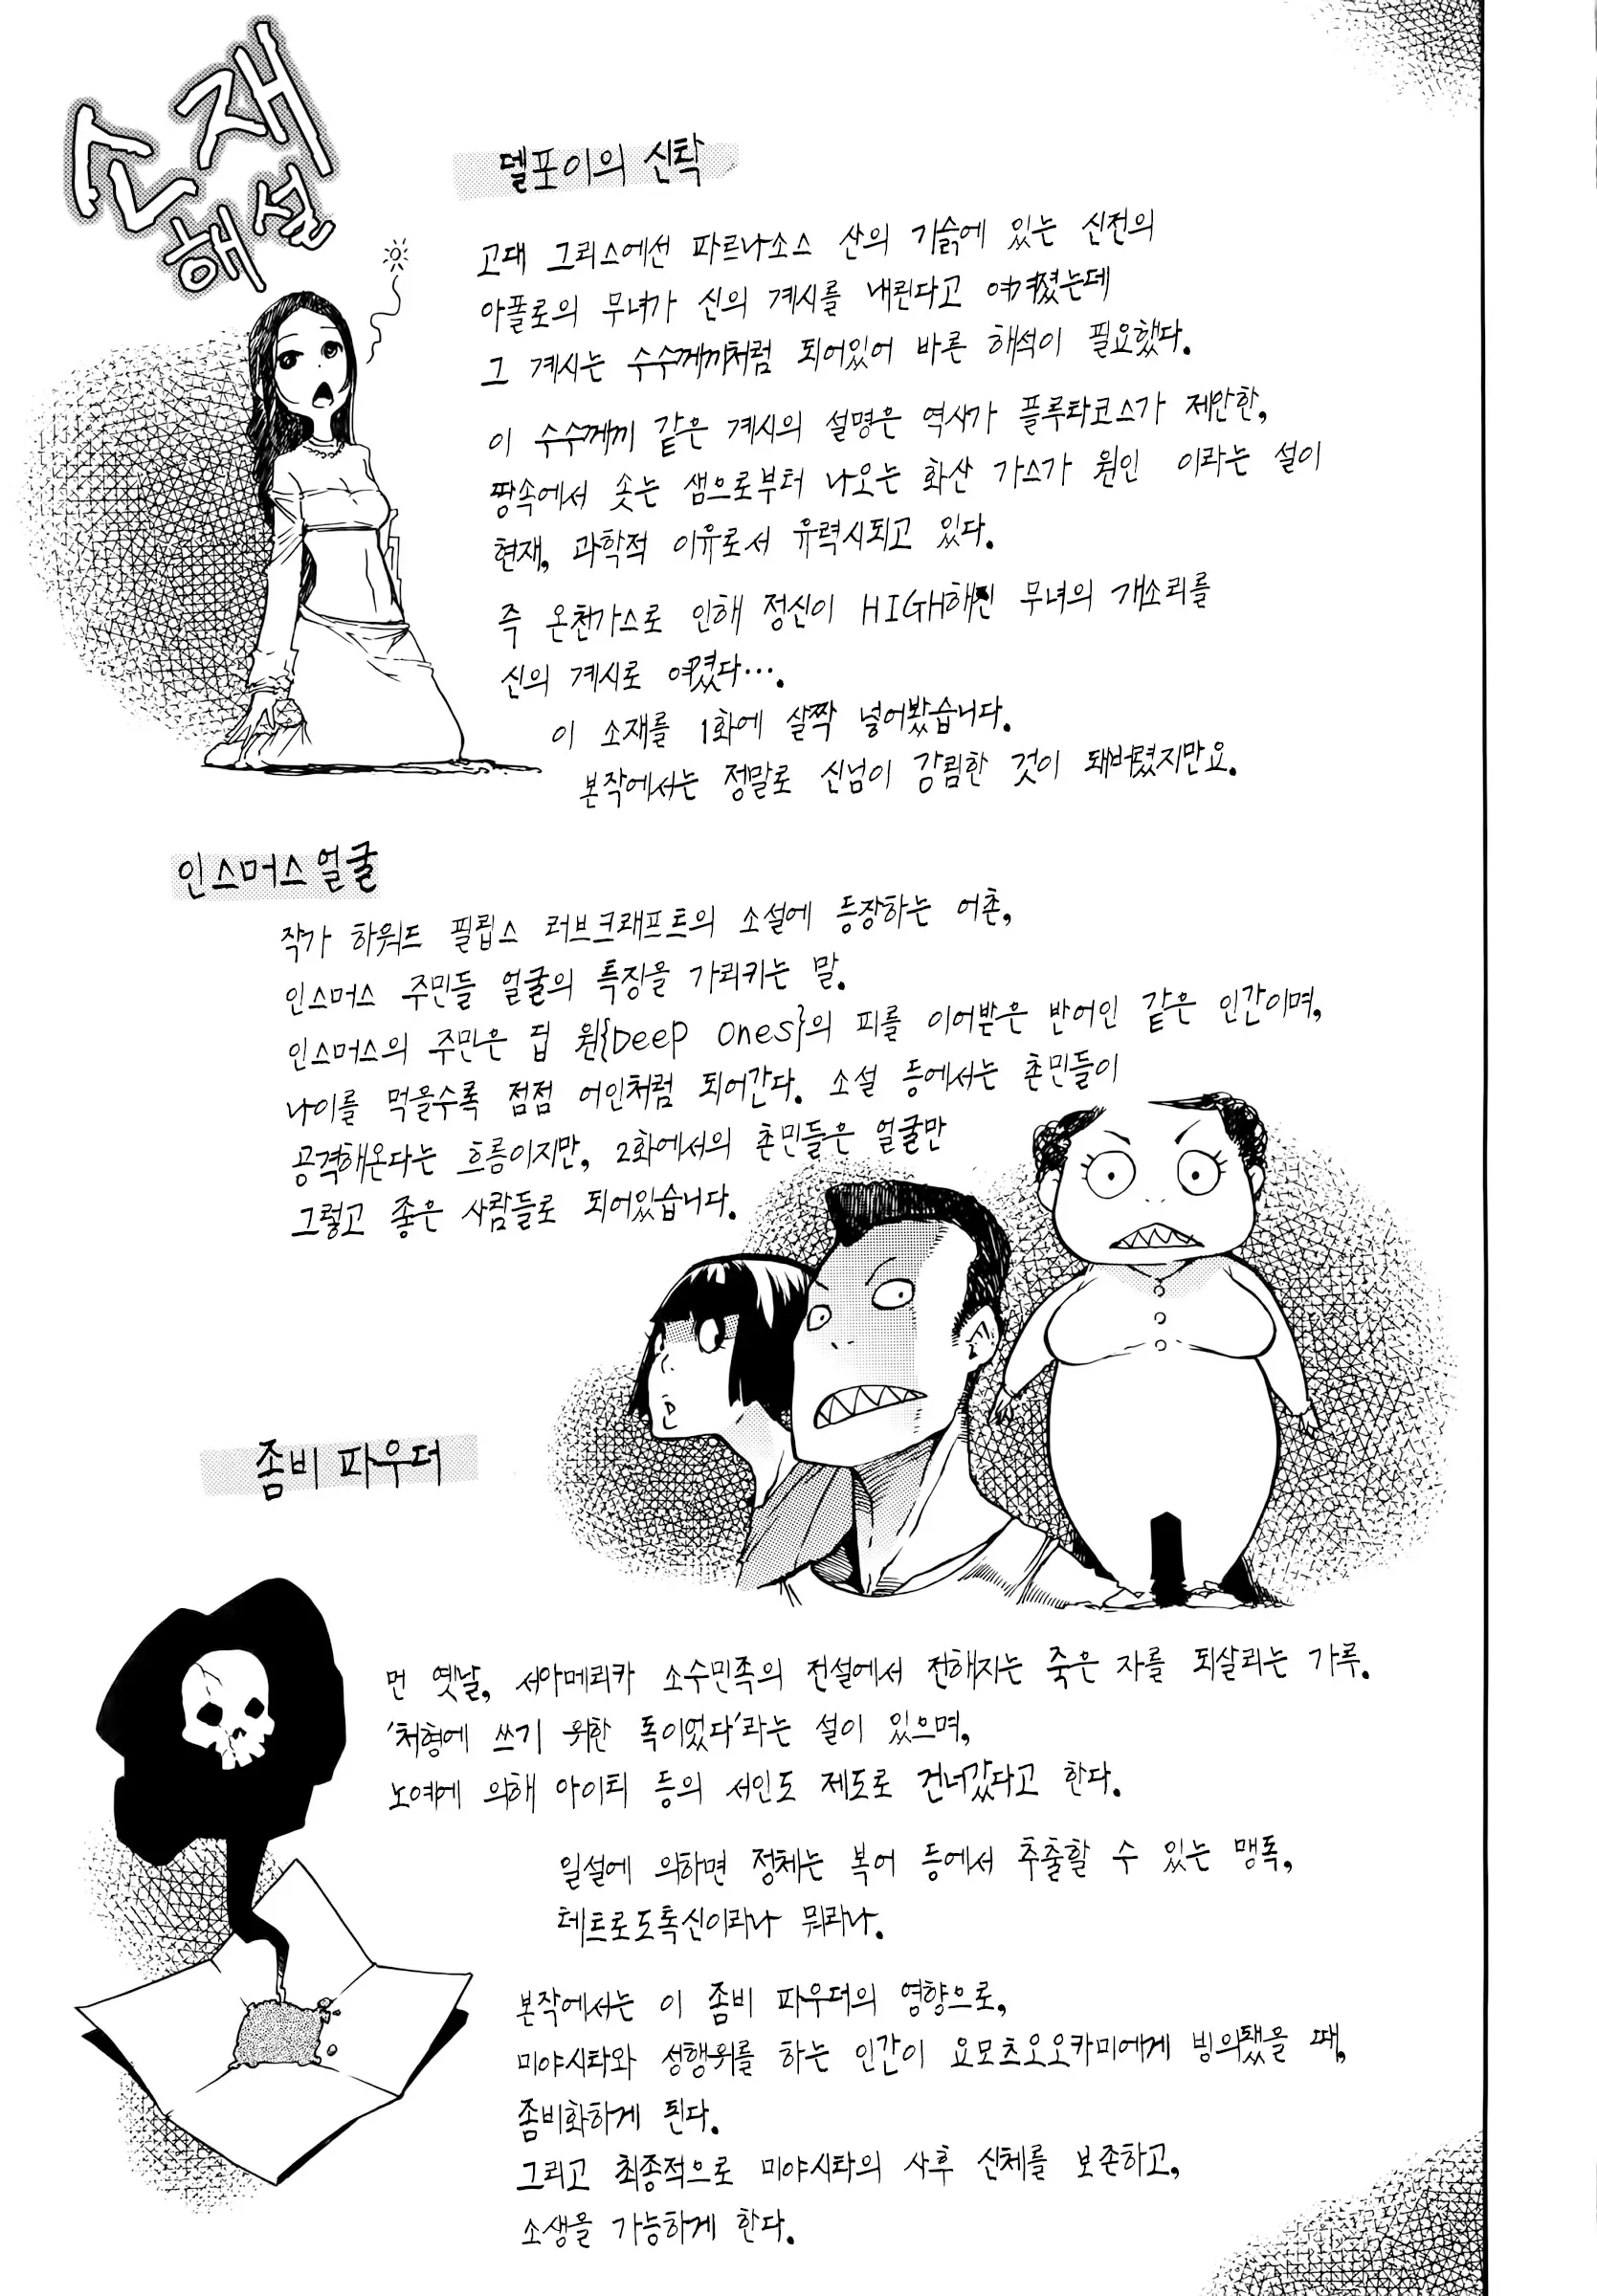 소재
해설
델포이의 신탁
고대 그리스에선 파르나소스 산의 기슭에 있는 신전의
아폴로의 무녀가 신의 계시를 내린다고 여겨졌는데
그 계시는 수수께끼처럼 되어있어 바른 해석이 필요했다.
이 수수께끼 같은 계시의 설명은 역사가 플루타코스가 제안한,
땅속에서 솟는 샘으로부터 나오는 화산 가스가 원인 이라는 설이
현재, 과학적 이유로서 유력시되고 있다.
즉 온천가스로 인해 정신이 HIGH해진 무녀의 개소리를
신의 계시로 여겼다….
이 소재를 1화에 살짝 넣어봤습니다.
본작에서는 정말로 신님이 강림한 것이 돼버렸지만요.
인스머스 얼굴
작가 하워드 필립스 러브크래프트의 소설에 등장하는 어촌,
인스머스 주민들 얼굴의 특징을 가리키는 말.
인스머스의 주민은 딥 원{Deep Ones}의 피를 이어받은 반어인 같은 인간이며,
나이를 먹을수록 점점 어인처럼 되어간다. 소설 등에서는 촌민들이
공격해온다는 흐름이지만, 2화에서의 촌민들은 얼굴만
그렇고 좋은 사람들로 되어있습니다.
좀비 파우더
먼 옛날, 서아메리카 소수민족의 전설에서 전해지는 죽은 자를 되살리는 가루.
'처형에 쓰기 위한 독이었다'라는 설이 있으며,
노예에 의해 아이티 등의 서인도 제도로 건너갔다고 한다.
일설에 의하면 정체는 복어 등에서 추출할 수 있는 맹독,
테트로도톡신이라나 뭐라나.
본작에서는 이 좀비 파우더의 영향으로,
미야시타와 성행위를 하는 인간이 요모츠오오카미에게 빙의됐을 때,
좀비화하게 된다.
그리고 최종적으로 미야시타의 사후 신체를 보존하고,
소생을 가능하게 한다.